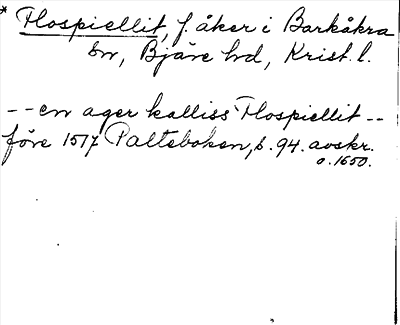 * Hospiellit, f. åker i Barkåkra
sn, Bjäre hd, Krist. l.
- - en ager kalliss Hospiellit - -
före 1517 Palteboken, s. 94. avskr.
o. 1650.